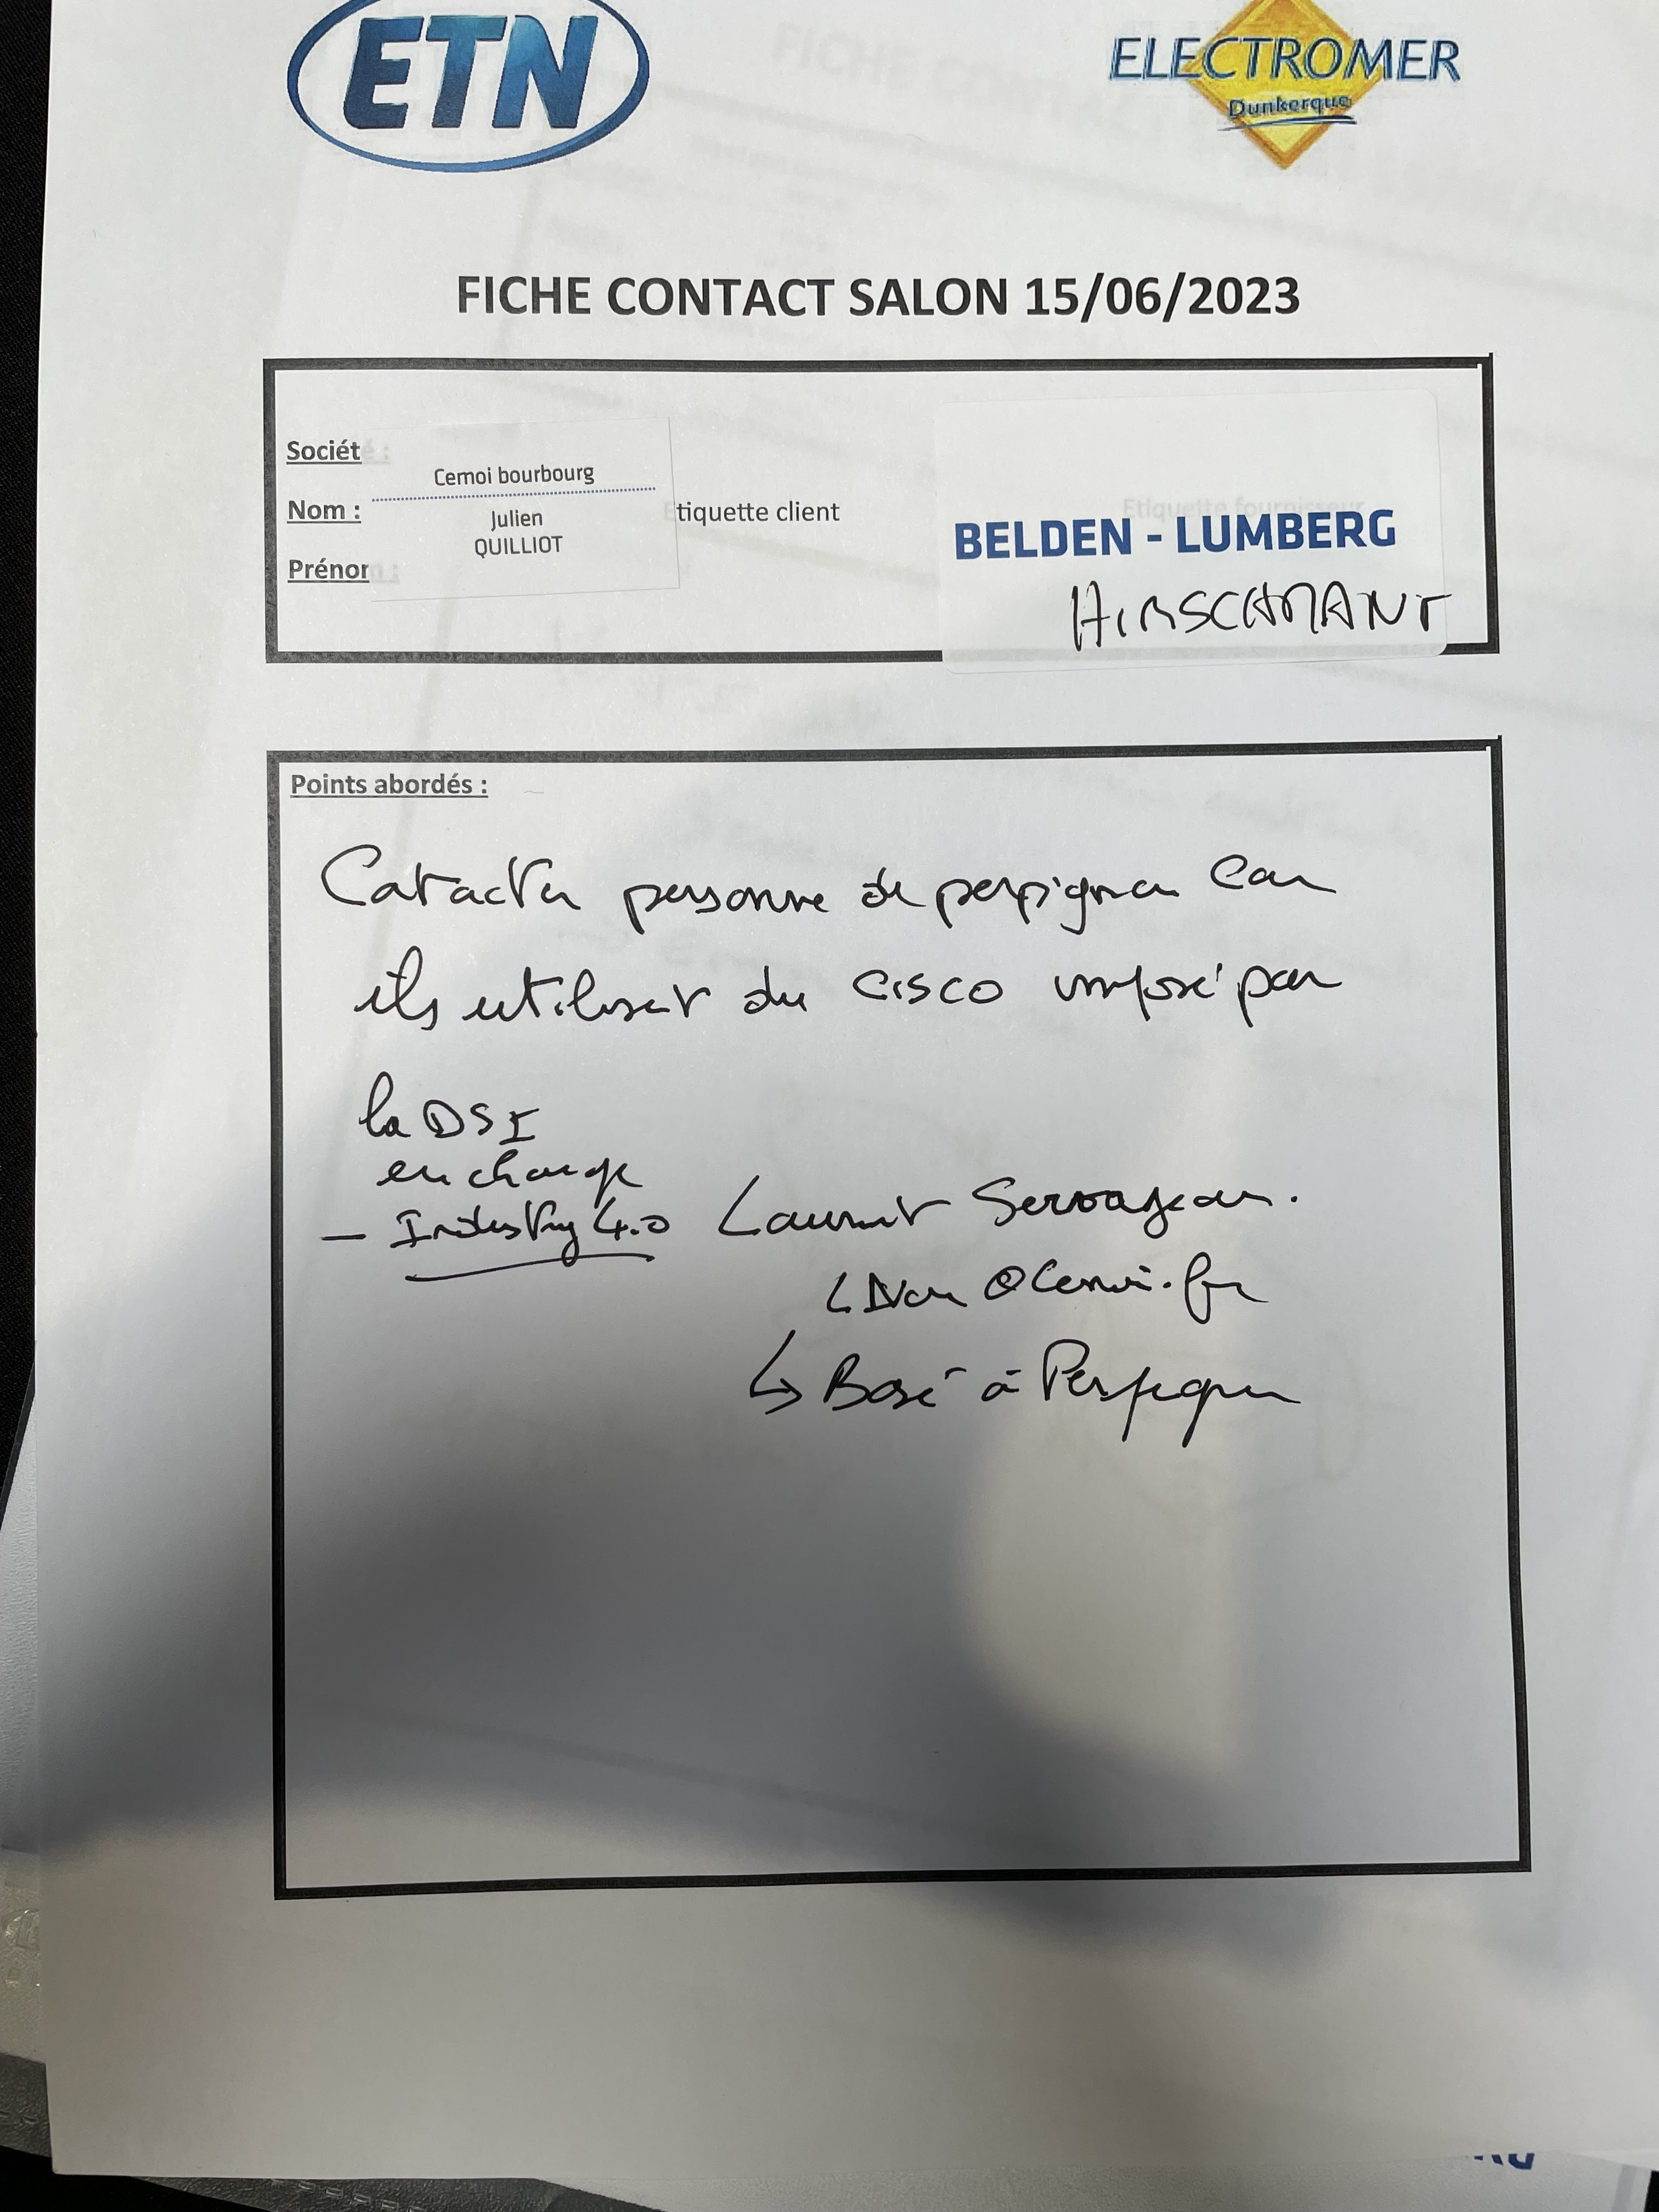 ETN
ELECTROMER
Dunkerque
FICHE CONTACT SALON 15/06/2023
Société :
Cemoi bourbourg
Nom :
Julien
QUILLIOT
Etiquette client
Prénom :
Etiquette fournisseur
BELDEN - LUMBERG
HIRSCHMANT
Points abordés :
Contacter personne de perpignan car
ils utilisent du cisco imposé par
la DSI
en charge
— Industry 4.0 Laurent Servagean.
@Cemoi.fr
↳ Basé à Perpignan